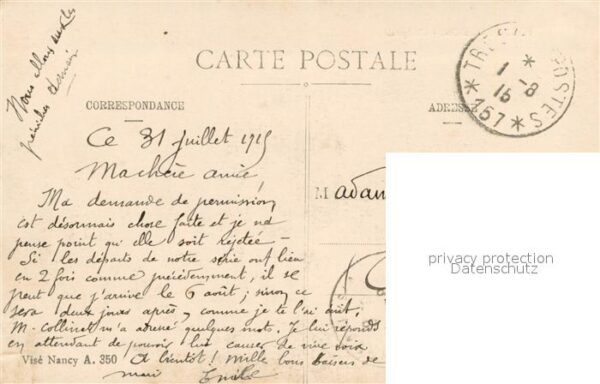 Nous allons aux
premières demain
CARTE POSTALE
CORRESPONDANCE
ADRESSE
TRESOR POSTES
1 -8
15
* 157 *
Ce 31 Juillet 1915
Ma chère amie
Ma demande de permission
est désormais chose faite et je ne
pense point qu'elle soit rejetée –
Si les départs de notre série ont lieu
en 2 fois comme précédemment, il se
peut que j'arrive le 6 août ; sinon ce
sera deux jours après, comme je te l'ai écrit ;
M. Collinet m'a adressé quelques mots. Je lui réponds
en attendant de pouvoir lui causer de vive voix
A bientôt ! Mille bons baisers de
mari Emile
Visé Nancy A. 350
Madam
privacy protection
Datenschutz